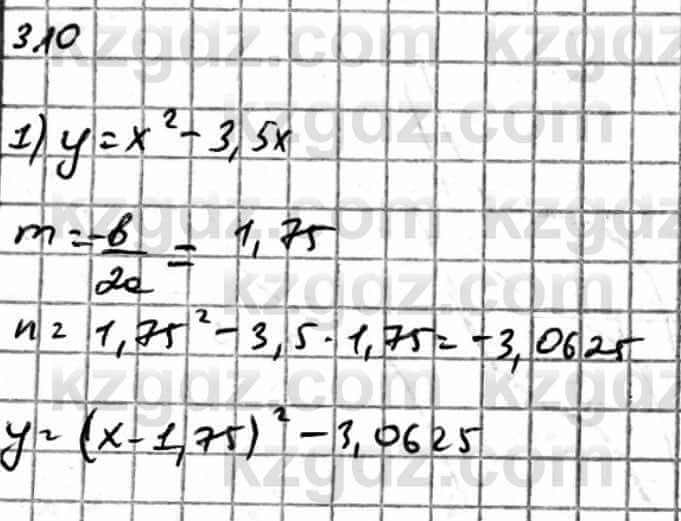 3.10
kzgdz.com kzgdz
kzgdz.com
1) y = x² - 3,5x
kzgdz.com kzgdz
m = -b/2a = 1,75
kzgdz.com
n = 1,75² - 3,5 · 1,75 = -3,0625
kzgdz.com kzgdz
y = (x - 1,75)² - 3,0625
kzgdz.com